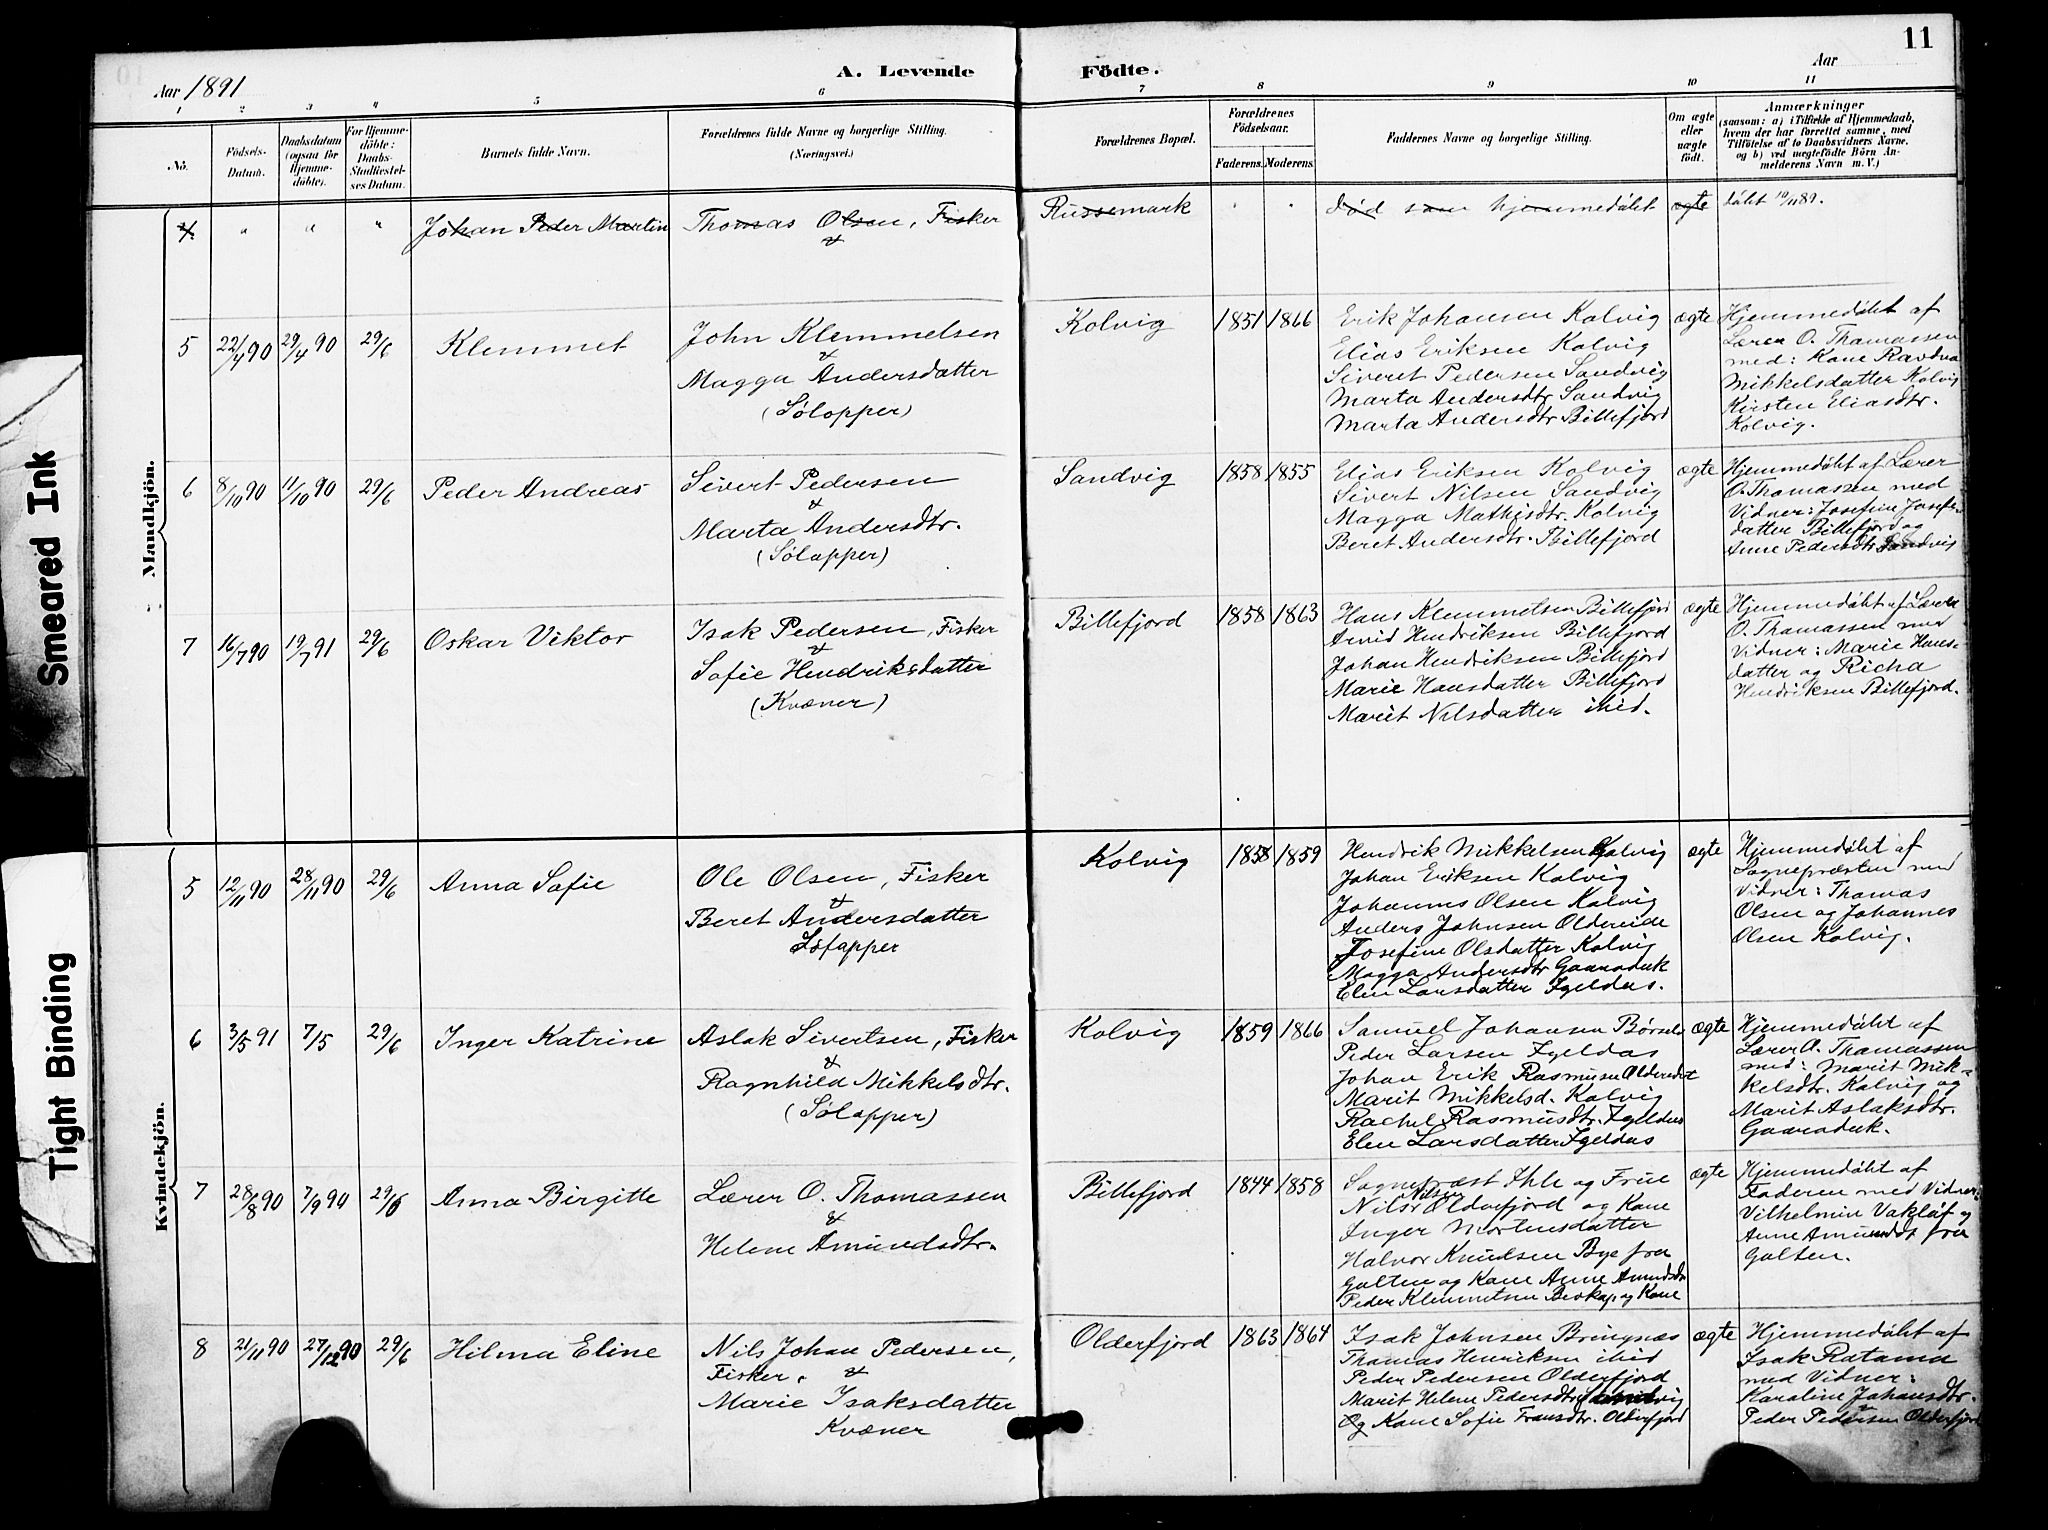 11
Aar 1891
A. Levende
Födte.
Aar
1 2 3 4 5 6 7 8 9 10 11
No.
Födsels-
Datum.
Daabsdatum
(ogsaa för
Hjemme-
döbte).
For Hjemme-
döbte:
Daabs-
Stadfæstel-
ses Datum.
Barnets fulde Navn.
Forældrenes fulde Navne og borgerlige Stilling.
(Næringsvei.)
Forældrenes Bopæl.
Forældrenes
Födselsaar.
Faderens.
Moderens.
Faddernes Navne og borgerlige Stilling.
Om ægte
eller
uægte
födt.
Anmærkninger
(saasom: a) i Tilfælde af Hjemmedaab,
hvem der har forrettet samme, med
Tilföielse af to Daabsvidners Navne,
og b) ved uægtefödte Börn An-
melderens Navn m. V.)
Mandkjön.
4. " " " Johan Peder Martin
Thomas Olsen, Fisker
&
Russemark
død som hjemmedøbt
ægte
døbt 10/11 89.
5 22/4 90 29/4 90 29/6 Klemmet
John Klemmetsen
&
Magga Andersdatter
(Sølapper)
Kolvig
1851 1866
Erik Johansen Kolvig
Elias Eriksen Kolvig
Siveret Pedersen Sandvig
Marta Andersdtr Sandvig
Marta Andersdtr Billefjord
ægte
Hjemmedøbt af
Lærer O. Thomassen
med: Kone Ravdna
Mikkelsdatter Kolvig
Kirsten Eliasdtr.
Kolvig.
6 8/10 90 11/10 90 29/6 Peder Andreas
Sivert Pedersen
&
Marta Andersdtr.
(Sølapper)
Sandvig
1858 1855
Elias Eriksen Kolvig
Sivert Nilsen Sandvig
Magga Mathisdtr. Kolvig
Beret Andersdtr. Billefjord
ægte
Hjemmedøbt af Lærer
O. Thomassen med
Vidner: Josefine Josefs-
datter Billefjord og
Anne Pedersdtr Sandvig
7 16/7 90 19/7 91 29/6 Oskar Viktor
Isak Pedersen, Fisker
&
Sofie Hendriksdatter
(Kvæner)
Billefjord
1858 1863
Hans Klemmetsen Billefjord
Arvid Hendriksen Billefjord
Johan Hendriksen Billefjord
Marie Hansdatter Billefjord
Marit Nilsdatter ibid.
ægte
Hjemmedøbt af Lærer
O. Thomassen med
Vidner: Marie Hans-
datter og Richa
Hendriksen Billefjord.
Kvindekjön.
5 12/11 90 28/11 90 29/6 Anna Sofie
Ole Olsen, Fisker
&
Beret Andersdatter
Søfapper
Kolvig
1858 1859
Hendrik Mikkelsen Kolvig
Johan Eriksen Kolvig
Johannes Olsen Kolvig
Anders Johnsen Oldereide
Josefine Olsdatter Kolvig
Magga Andersdtr Gaaraduk
Elen Larsdatter Igeldas.
ægte
Hjemmedøbt af
Sognepræsten med
Vidner: Thomas
Olsen og Johannes
Olsen Kolvig.
6 3/5 91 7/5 29/6 Inger Katrine
Aslak Sivertsen, Fisker
&
Ragnhild Mikkelsdtr.
(Sølapper)
Kolvig
1859 1866
Samuel Johansen Børsel
Peder Larsen Igeldas
Johan Erik Rasmusen Oldereidet
Marit Mikkelsd. Kolvig
Rachel Rasmusdtr. Igeldas
Elen Larsdatter Igeldas
ægte
Hjemmedøbt af
Lærer O. Thomassen
med: Marit Mik-
kelsdtr. Kolvig og
Marit Aslaksdtr.
Gaaraduk.
7 28/8 90 7/9 90 29/6 Anna Birgitte
Lærer O. Thomassen
&
Helene Amundsdtr.
Billefjord
1844 1858
Sognepræst Ihle og Frue
Nils Nilsen Olderfjord og Kone
Inger Mortensdatter
Halvor Knudsen Bye fra
Galten og Kone Anne Amundsdtr
Peder Klemmetsen Beskap og Kone
ægte
Hjemmedøbt af
Faderen med Vidner:
Vilhelmin Vakläf og
Anne Amundsdt fra
Galten.
8 21/11 90 27/12 90 29/6 Hilma Eline
Nils Johan Pedersen,
Fisker. &
Marie Isaksdatter
Kvæner
Olderfjord
1863 1864
Isak Johnsen Bringnæs
Thomas Henriksen ibid
Peder Pedersen Olderfjord
Marit Helene Pedersdtr Sandvig
Og Kone Sofie Fransdtr. Olderfjord
ægte
Hjemmedøbt af
Isak Ratama
med Vidner:
Karoline Johansdtr.
&
Peder Pedersen Olderfjord
Smeared Ink
Tight Binding